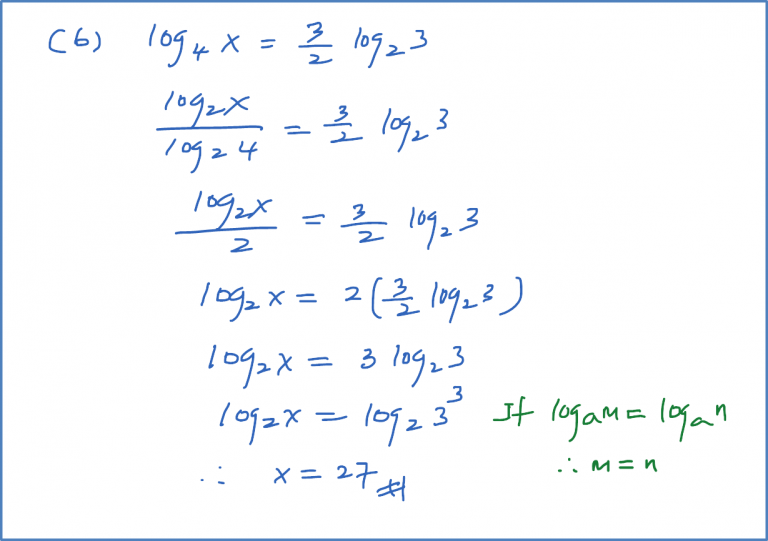 (6) log₄ x = 3/2 log₂ 3
log₂x / log₂ 4 = 3/2 log₂ 3
log₂x / 2 = 3/2 log₂ 3
log₂ x = 2(3/2 log₂ 3)
log₂ x = 3 log₂ 3
log₂ x = log₂ 3³ If logₐm = logₐn
∴ x = 27 ∴ m = n